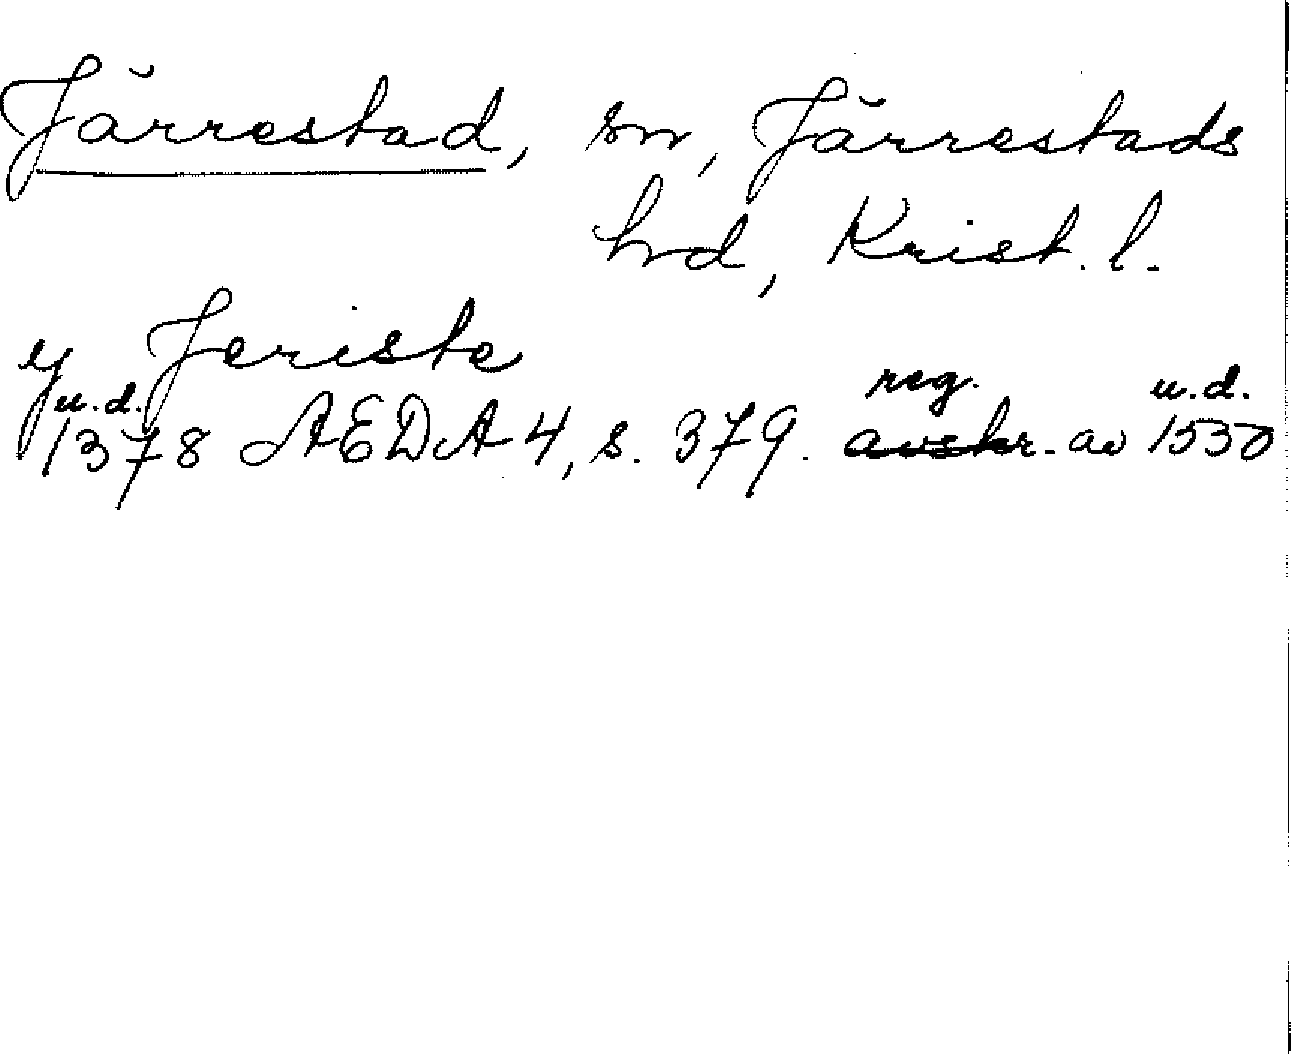 Järrestad, sn, Järrestads
hd, Krist. l.
y Jeriste
u.d. reg. u.d.
1378 AEDA 4, s. 379. avskr. av 1530